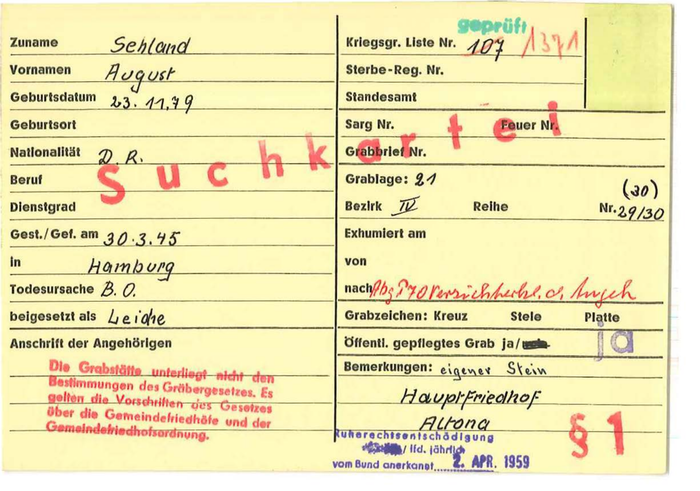 Zuname Sehland
Vornamen August
Geburtsdatum 23.11.79
Geburtsort
Nationalität D.R.
Beruf
Dienstgrad
Gest./Gef. am 30.3.45
in Hamburg
Todesursache B.O.
beigesetzt als Leiche
Anschrift der Angehörigen
Die Grabstätte unterliegt nicht den
Bestimmungen des Gräbergesetzes. Es
gelten die Vorschriften des Gesetzes
über die Gemeindefriedhöfe und der
Gemeindefriedhofsordnung.
Suchkartei
geprüft
Kriegsgr. Liste Nr. 107 / 1371
Sterbe-Reg. Nr.
Standesamt
Sarg Nr. Feuer Nr.
Grabbrief Nr.
Grablage: 21
(30)
Bezirk IV Reihe Nr. 29/30
Exhumiert am
von
nach
Grabzeichen: Kreuz Stele Platte
Öffentl. gepflegtes Grab ja/ ja
Bemerkungen: eigener Stein
Hauptfriedhof
Altona
§ 1
Ruherechtsentschädigung
/ lfd. jährlich
vom Bund anerkannt 2. APR. 1959